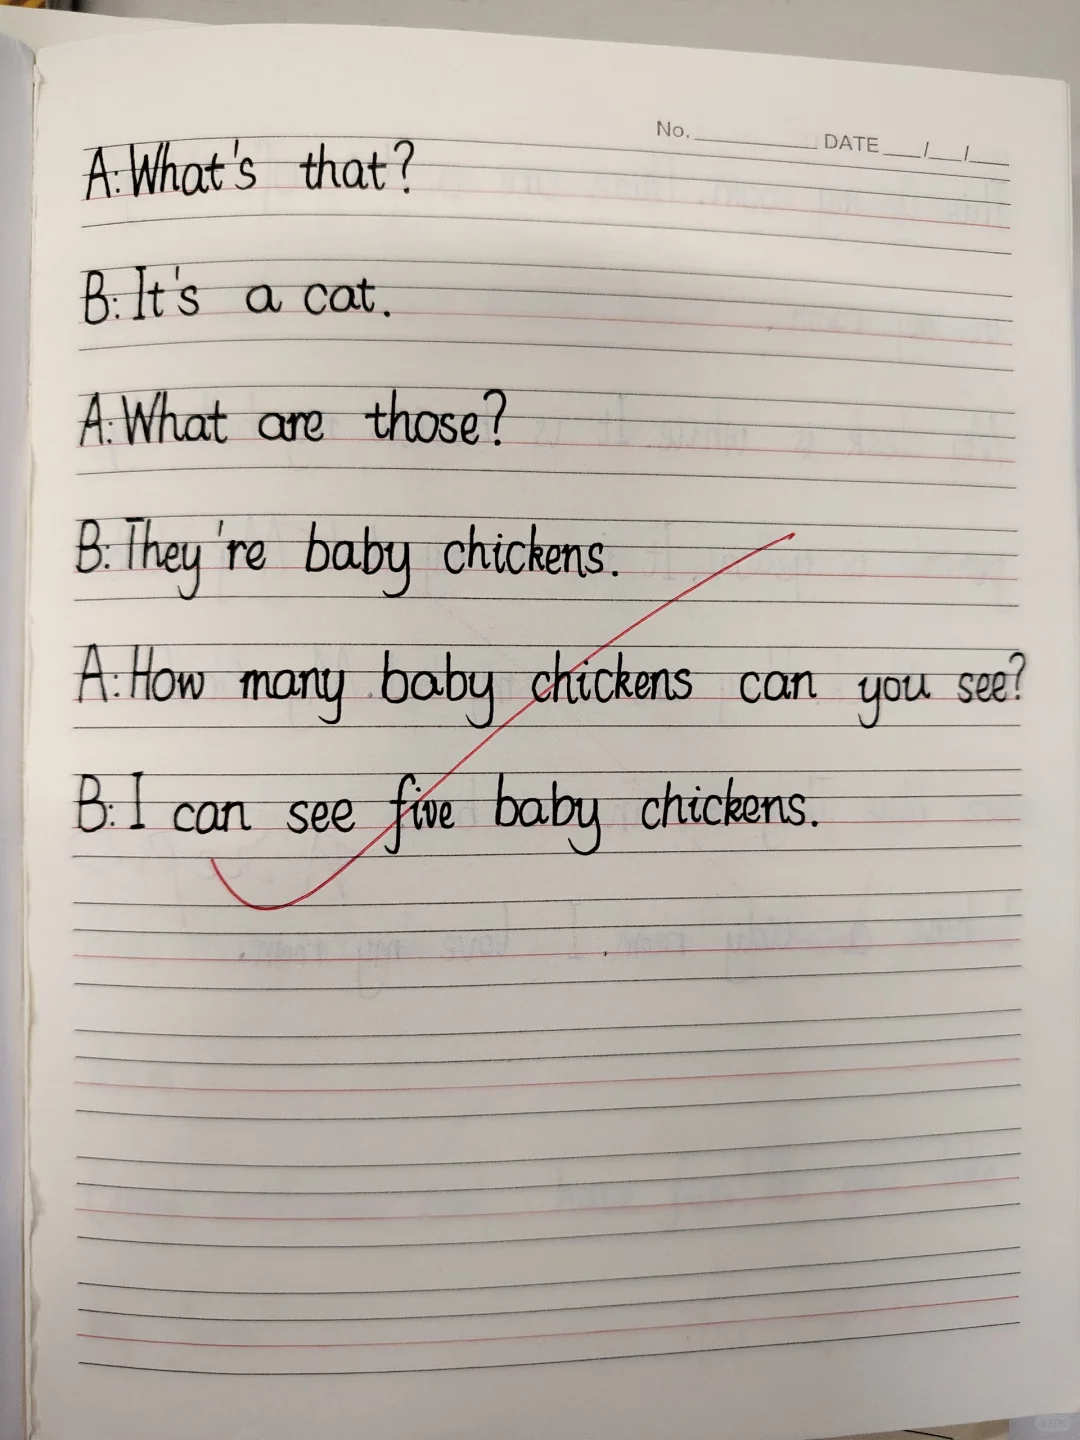 No. DATE / /
A: What's that?
B: It's a cat.
A: What are those?
B: They're baby chickens.
A: How many baby chickens can you see?
B: I can see five baby chickens.